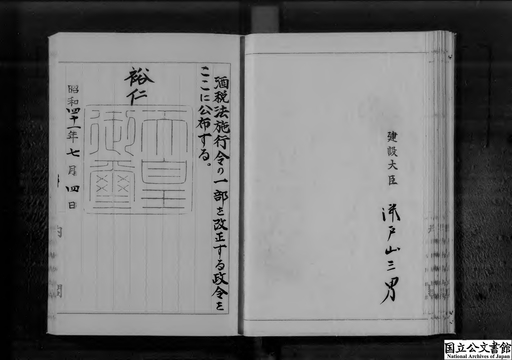 建設大臣
瀬戸山三男
酒税法施行令の一部を改正する政令を
ここに公布する。
裕仁
天皇
御璽
昭和四十一年七月四日
国立公文書館
National Archives of Japan